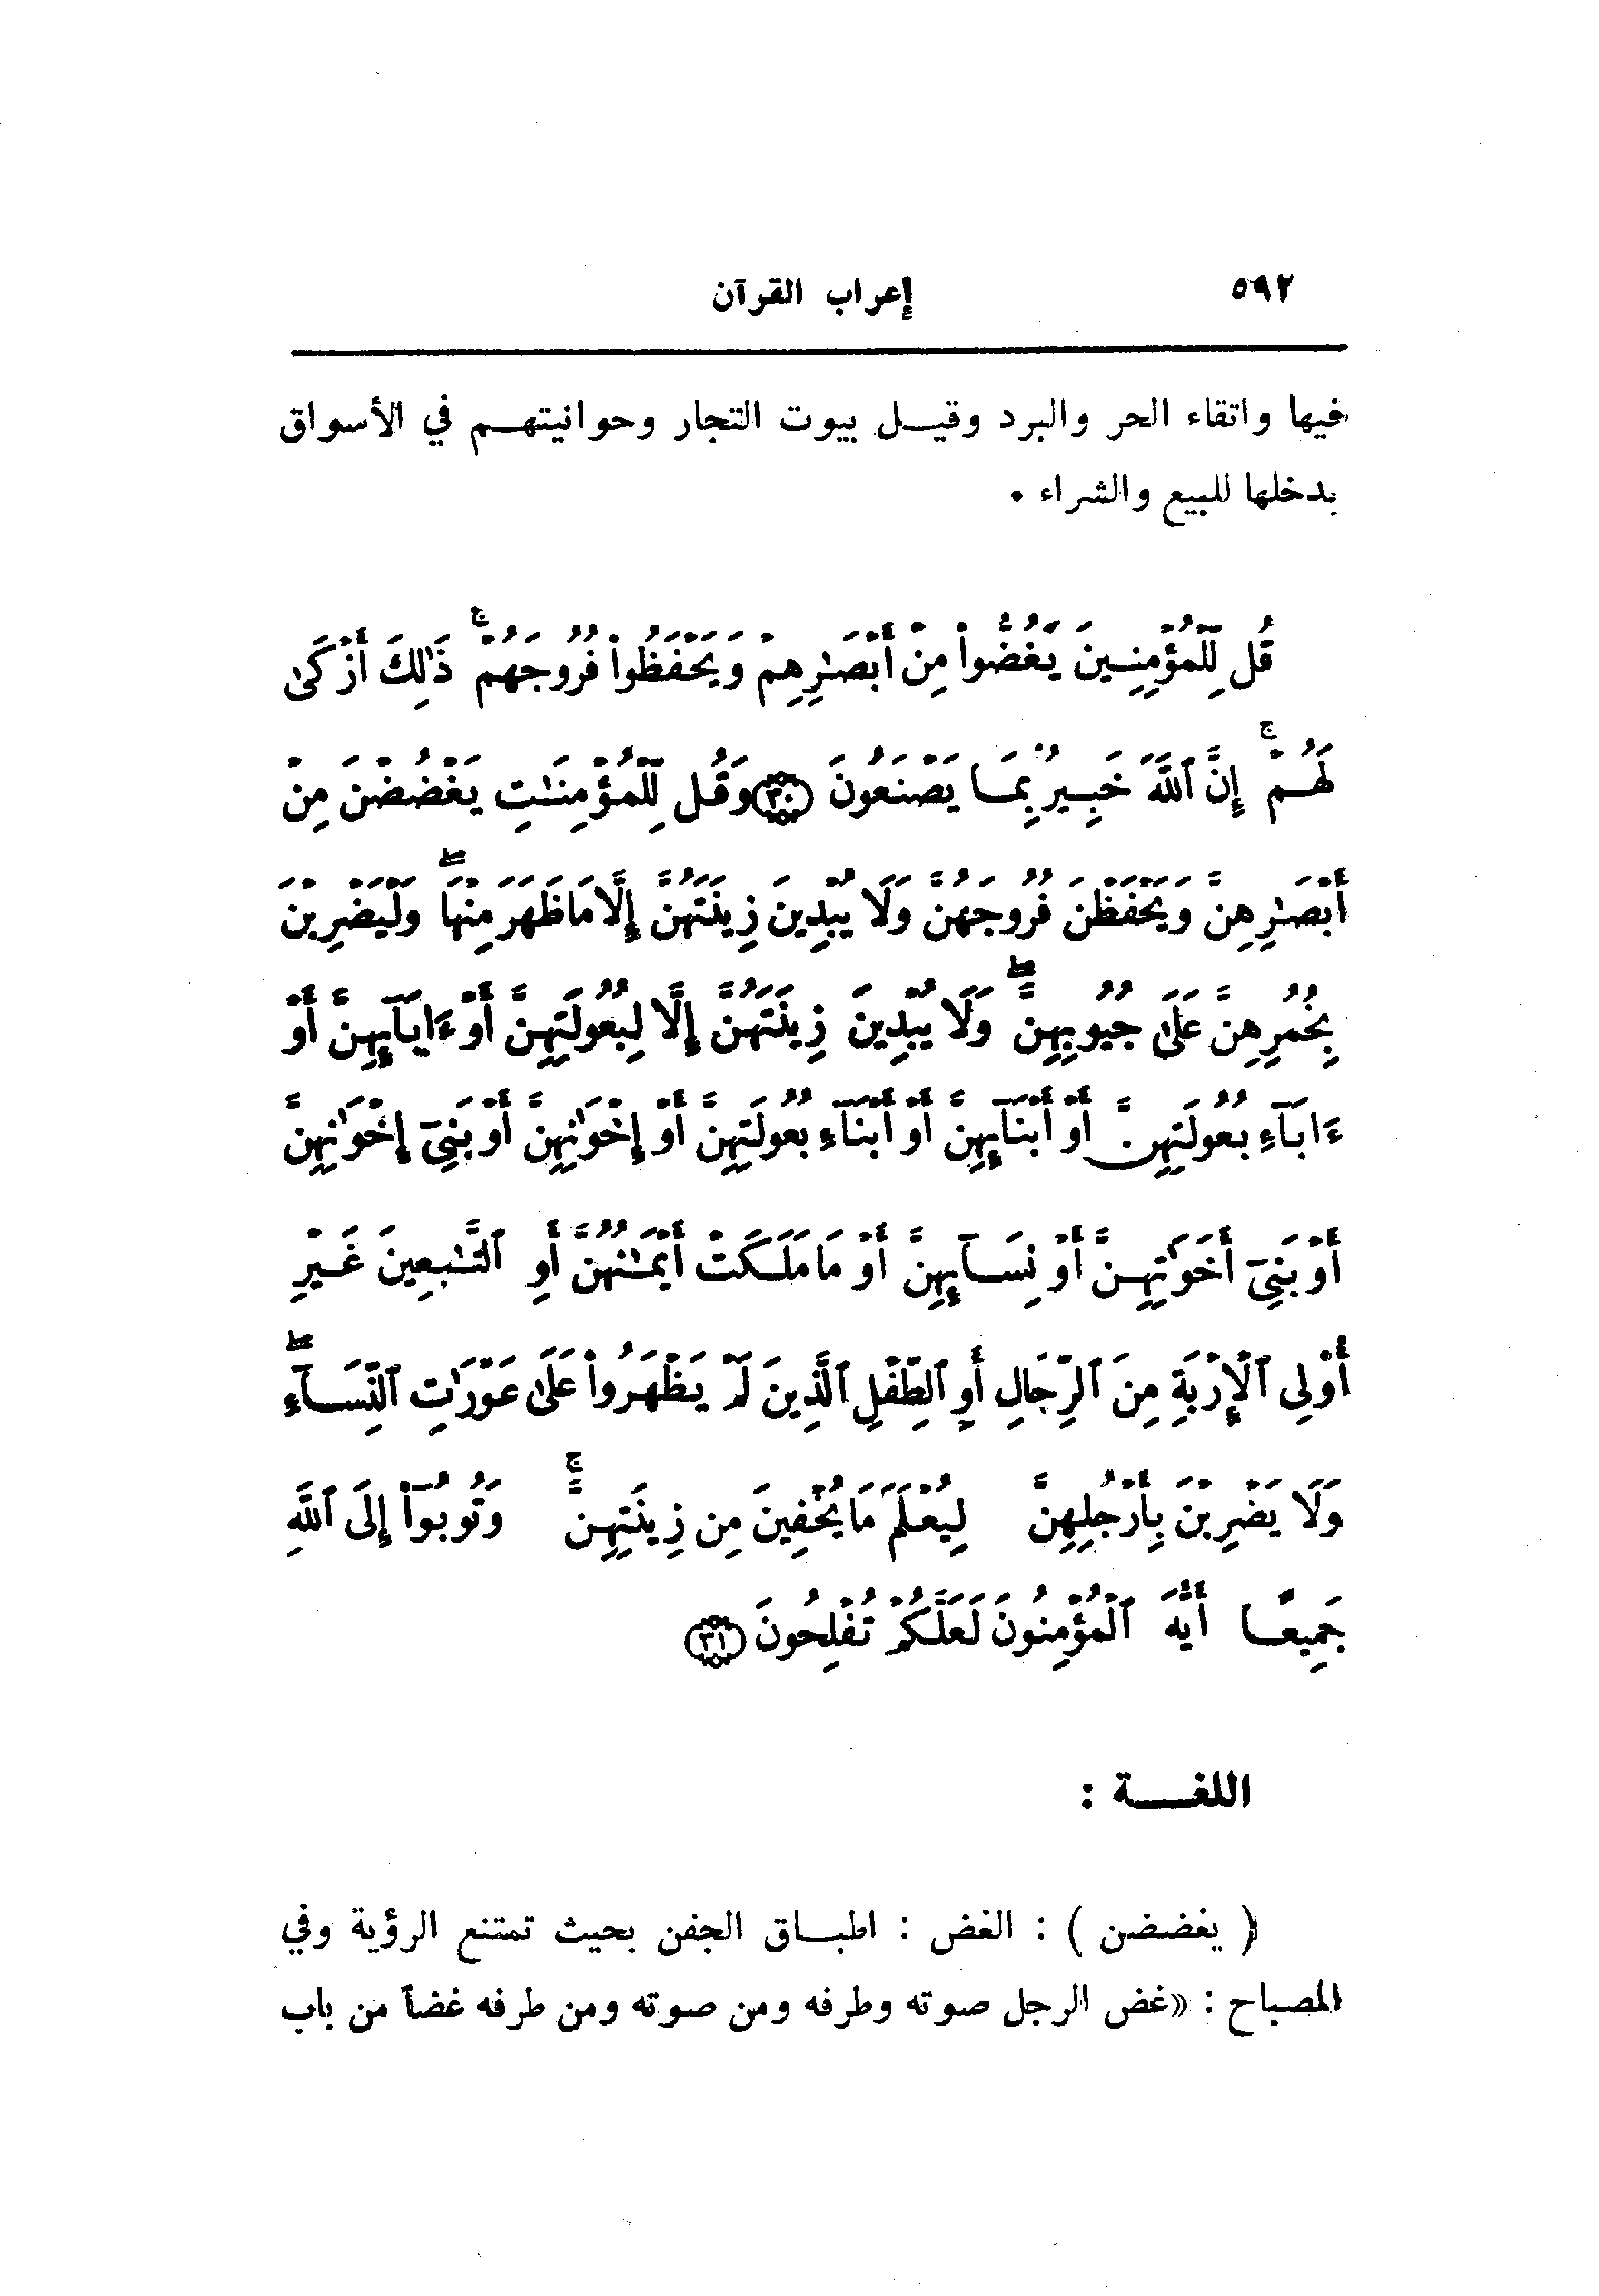 ٥٩٢ إعراب القرآن
فيها واتقاء الحر والبرد وقيـل بيوت التجار وحوانيتهـم في الأسواق
يدخلها للبيع والشراء ٠
قُل لِّلْمُؤْمِنِينَ يَغُضُّواْ مِنْ أَبْصَٰرِهِمْ وَيَحْفَظُواْ فُرُوجَهُمْ ۚ ذَٰلِكَ أَزْكَىٰ
لَهُمْ ۚ إِنَّ ٱللَّهَ خَبِيرٌۢ بِمَا يَصْنَعُونَ ٣٠ وَقُل لِّلْمُؤْمِنَٰتِ يَغْضُضْنَ مِنْ
أَبْصَٰرِهِنَّ وَيَحْفَظْنَ فُرُوجَهُنَّ وَلَا يُبْدِينَ زِينَتَهُنَّ إِلَّا مَا ظَهَرَ مِنْهَا ۖ وَلْيَضْرِبْنَ
بِخُمُرِهِنَّ عَلَىٰ جُيُوبِهِنَّ ۖ وَلَا يُبْدِينَ زِينَتَهُنَّ إِلَّا لِبُعُولَتِهِنَّ أَوْ ءَابَآئِهِنَّ أَوْ
ءَابَآءِ بُعُولَتِهِنَّ أَوْ أَبْنَآئِهِنَّ أَوْ أَبْنَآءِ بُعُولَتِهِنَّ أَوْ إِخْوَٰنِهِنَّ أَوْ بَنِىٓ إِخْوَٰنِهِنَّ
أَوْ بَنِىٓ أَخَوَٰتِهِنَّ أَوْ نِسَآئِهِنَّ أَوْ مَا مَلَكَتْ أَيْمَٰنُهُنَّ أَوِ ٱلتَّٰبِعِينَ غَيْرِ
أُوْلِى ٱلْإِرْبَةِ مِنَ ٱلرِّجَالِ أَوِ ٱلطِّفْلِ ٱلَّذِينَ لَمْ يَظْهَرُواْ عَلَىٰ عَوْرَٰتِ ٱلنِّسَآءِ ۖ
وَلَا يَضْرِبْنَ بِأَرْجُلِهِنَّ لِيُعْلَمَ مَا يُخْفِينَ مِن زِينَتِهِنَّ ۚ وَتُوبُوٓاْ إِلَى ٱللَّهِ
جَمِيعًا أَيُّهَ ٱلْمُؤْمِنُونَ لَعَلَّكُمْ تُفْلِحُونَ ٣١
اللغـــة :
( يغضضن ) : الغض : اطبـاق الجفن بحيث تمتنع الرؤية وفي
المصباح : «غض الرجل صوته وطرفه ومن صوته ومن طرفه غضاً من باب